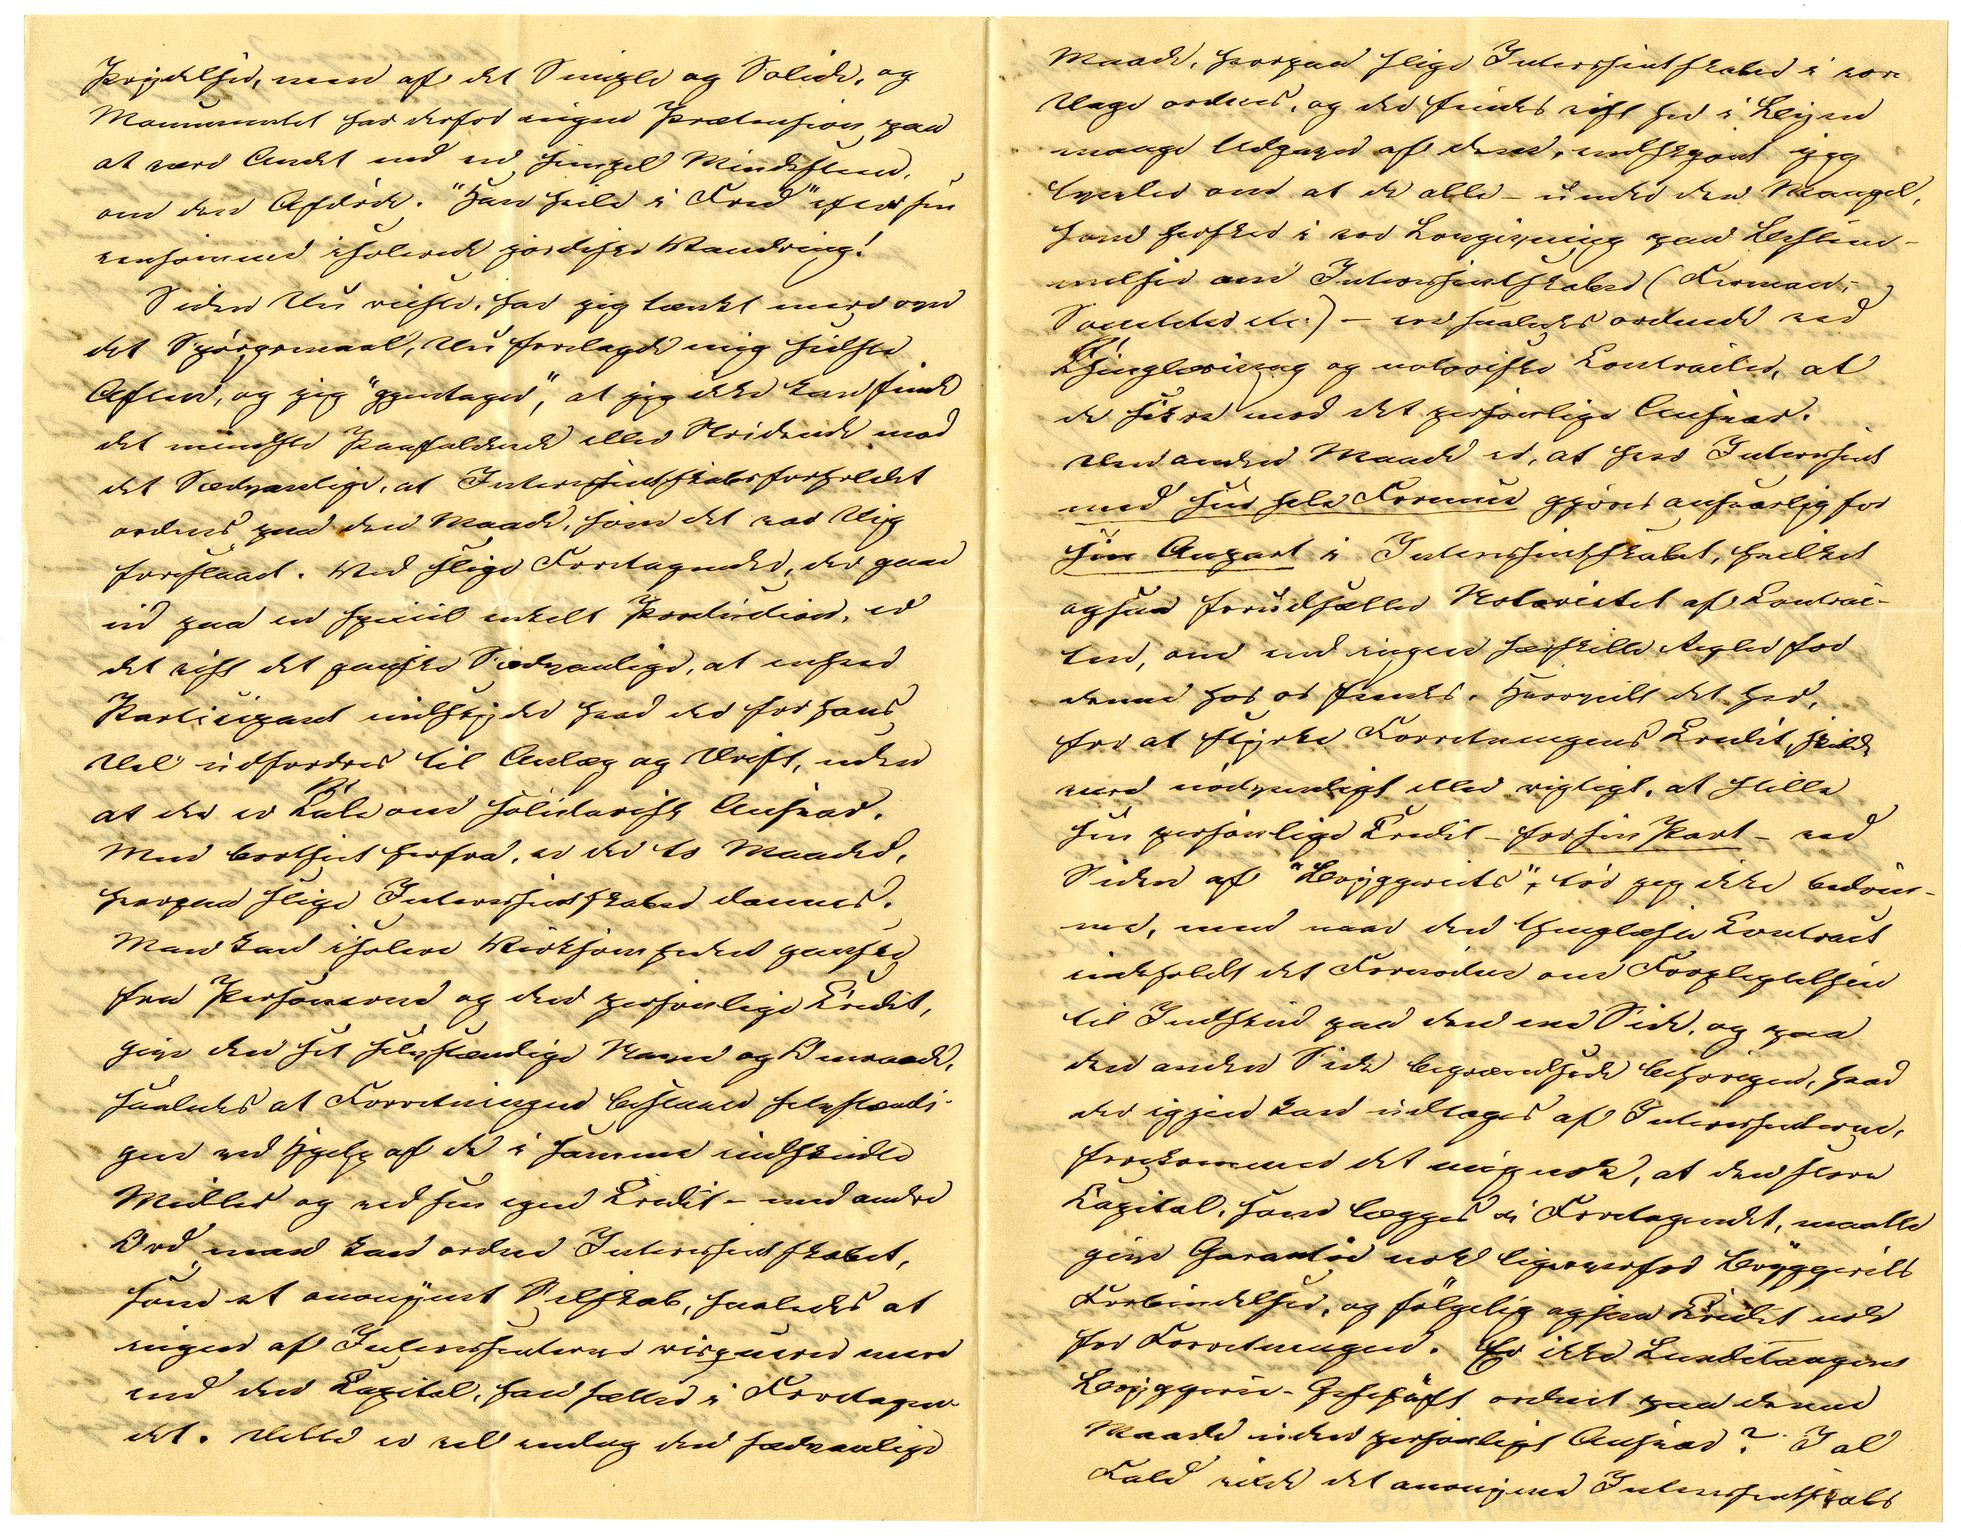 Prydelser, men af det Simple og Solide, og
Monumentet har derfor ingen Prætension paa
at være Andet end en simpel Mindesteen
om den Afdöde. "Han hvile i Fred" efter sin
ensomme isolerede jordiske Vandring!
Siden Du reiste, har jeg tænkt mere over
det Spörgsmaal, Du forelagde mig sidste
Aften, og jeg "gjentager", at jeg ikke kan finde
det mindste Paafaldende eller Stridende mod
det Sædvanlige, at Interessentskabsforholdet
ordnes paa den Maade, som det var Dig
foreslaaet. Ved slige Foretagender, der gaae
ud paa en speciel enkelt Production, er
det vist det ganske Sædvanlige, at enhver
Participant indskyder hvad der for hans
Deel udfordres til Anlæg og Drift, uden
at der er Tale om solidarisk Ansvar.
Men bortseet herfra, er der to Maader,
hvorpaa slige Interessentskaber dannes.
Man kan isolere Virksomheden ganske
fra Personerne og den personlige Credit,
give den sit selvstændige Navn og Omraade,
saaledes at Forretningen bestaaer selvstændi-
gen ved Hjelp af de i samme indskudte
Midler og ved sin egen Credit – med andre
Ord, man kan ordne Interessentskabet,
som et anonymt Selskab, saaledes at
ingen af Interessenterne risquerer mere
end den Kapital, han sætter i Foretagen-
det. Dette er vel endog den sædvanlige
Maade, hvorpaa slige Interessentskaber i vore
Dage ordnes, og der findes vist her i Byen
mange Udgaver af dem, endskjönt jeg
tvivler om at de alle – under den Mangel,
som hersker i vor Lovgivning paa Bestem-
melser om Interessentskaber (Firmaer,
Societeter etc:) – ere saaledes ordnede ved
Thinglæsning og notoriske Contracter, at
de sikre mod det personlige Ansvar.
Den anden Maade er, at hver Interessent
med sin hele Formue gjöres ansvarlig for
sin Anpart i Interessentskabet, hvilket
ogsaa forudsætter Notoritet af Contrac-
ten, om end ingen særskilte Regler for
denne hos os findes. Hvorvidt det her,
for at styrke Forretningens Credit, skulde
være nödvendigt eller rigtigt, at stille
sin personlige Credit – for sin Part – ved
Siden af "Bryggeriets", tör jeg ikke bedöm-
me, men naar den thinglæste Contract
indeholdt det Fornödne om Forpligtelsen
til Indskud paa den ene Side, og paa
den anden Side begrændsede behörigen, hvad
der igjen kan udtages af Interessenterne,
forekommer det mig nok, at den store
Kapital, som lægges i Foretagendet, maatte
give Garantie nok ligeoverfor Bryggeriets
Forbindelser, og fölgelig ogsaa Credit nok
for Forretningen. Er ikke Lundetangens
Bryggerie-Geschäft ordnet paa denne
Maade uden personligt Ansvar? I al
Fald vilde det anonyme Interessentskabs